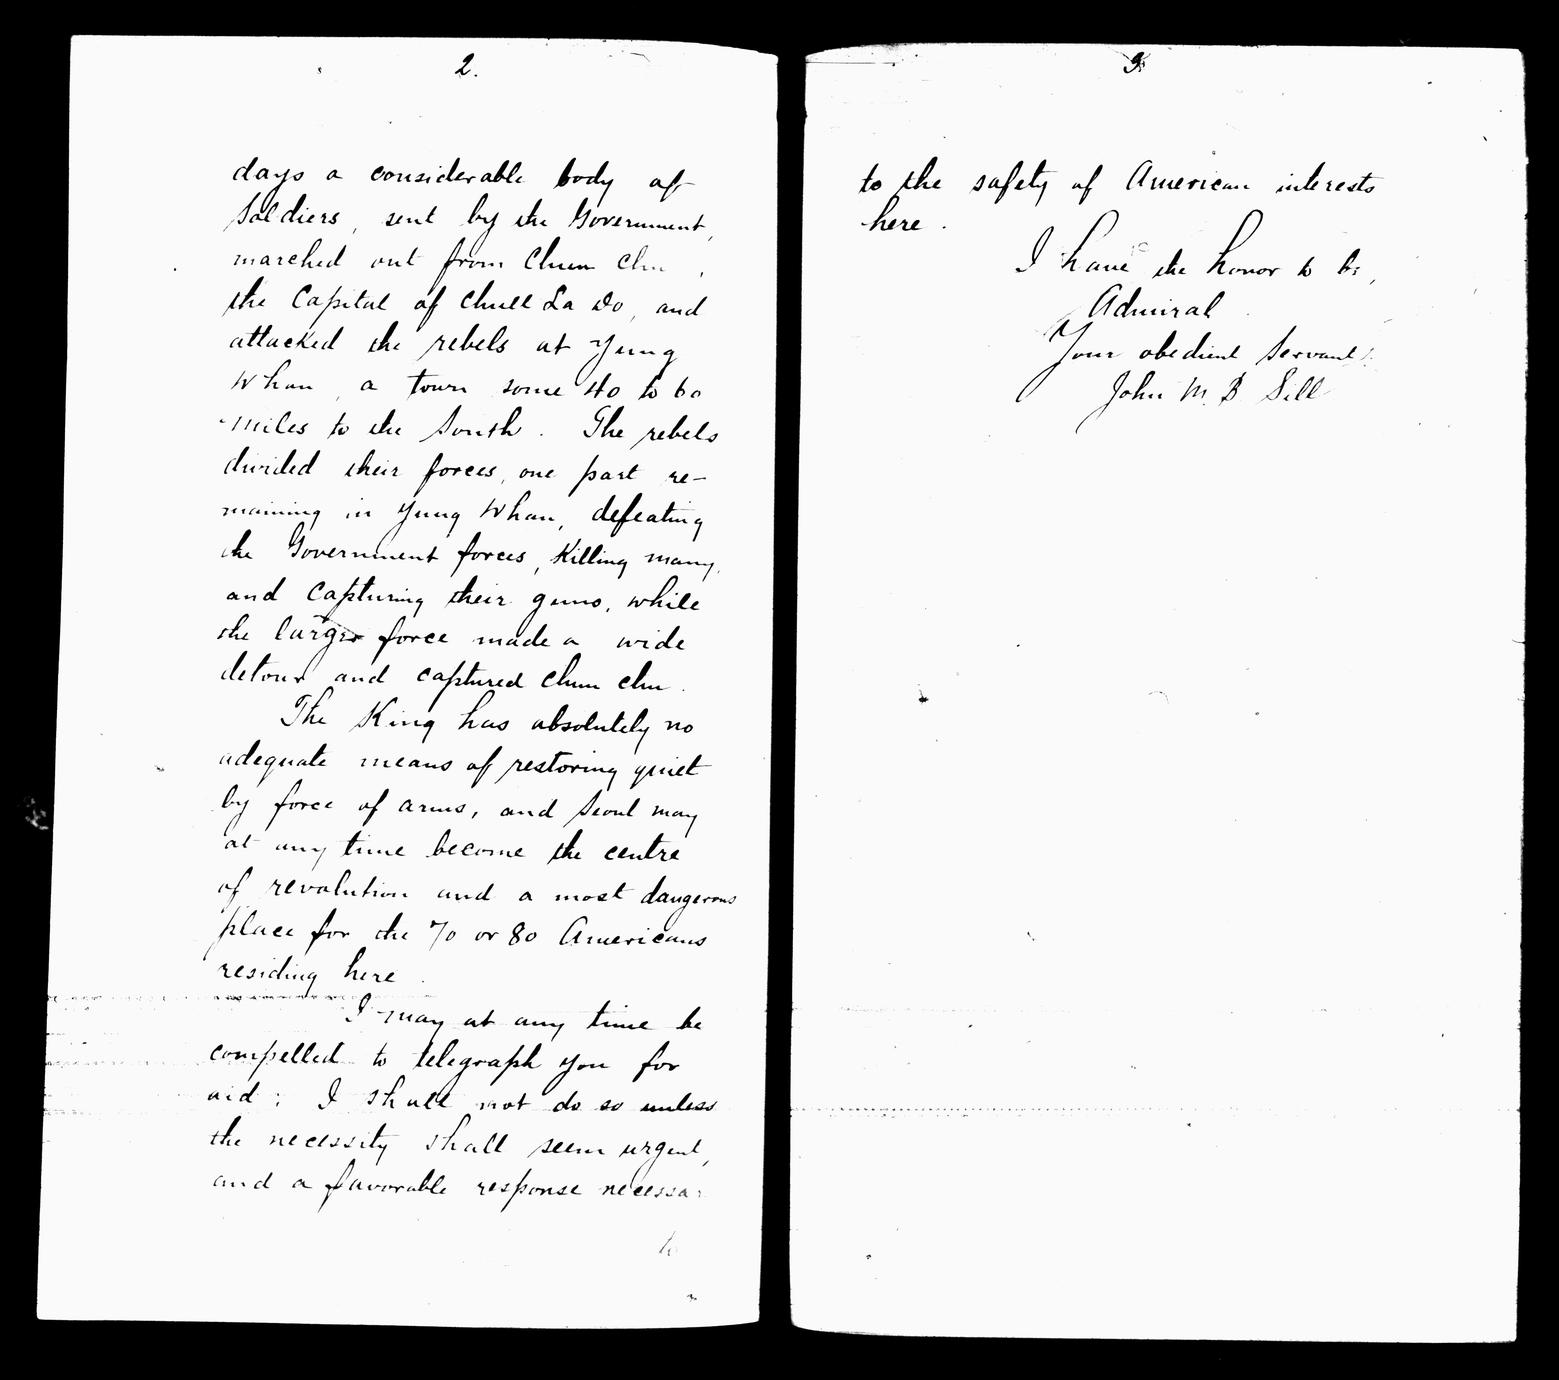 2.
days a considerable body of
Soldiers, sent by the Government,
marched out from Chun Chu,
the Capital of Chull La Do, and
attacked the rebels at Yung
Whan, a town some 40 to 60
miles to the South. The rebels
divided their forces, one part re-
maining in Yung Whan, defeating
the Government forces, Killing many,
and Capturing their guns, while
the larger force made a wide
detour and captured Chun Chu.
The King has absolutely no
adequate means of restoring quiet
by force of arms, and Seoul may
at any time become the centre
of revolution and a most dangerous
place for the 70 or 80 Americans
residing here.
I may at any time be
compelled to telegraph you for
aid; I shall not do so unless
the necessity shall seem urgent,
and a favorable response necessary
to
3
to the safety of American interests
here.
I have the honor to be,
Admiral
Your obedient Servant.
John M. B Sill